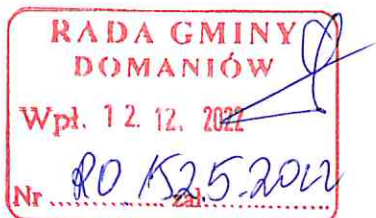 RADA GMINY
DOMANIÓW
Wpł. 12. 12. 2022
Nr RO 1525.2022 zał.